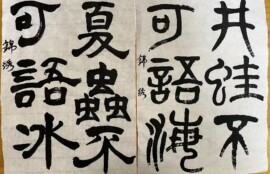 井蛙不
可語海
錦绣
夏蟲不
可語冰
錦绣